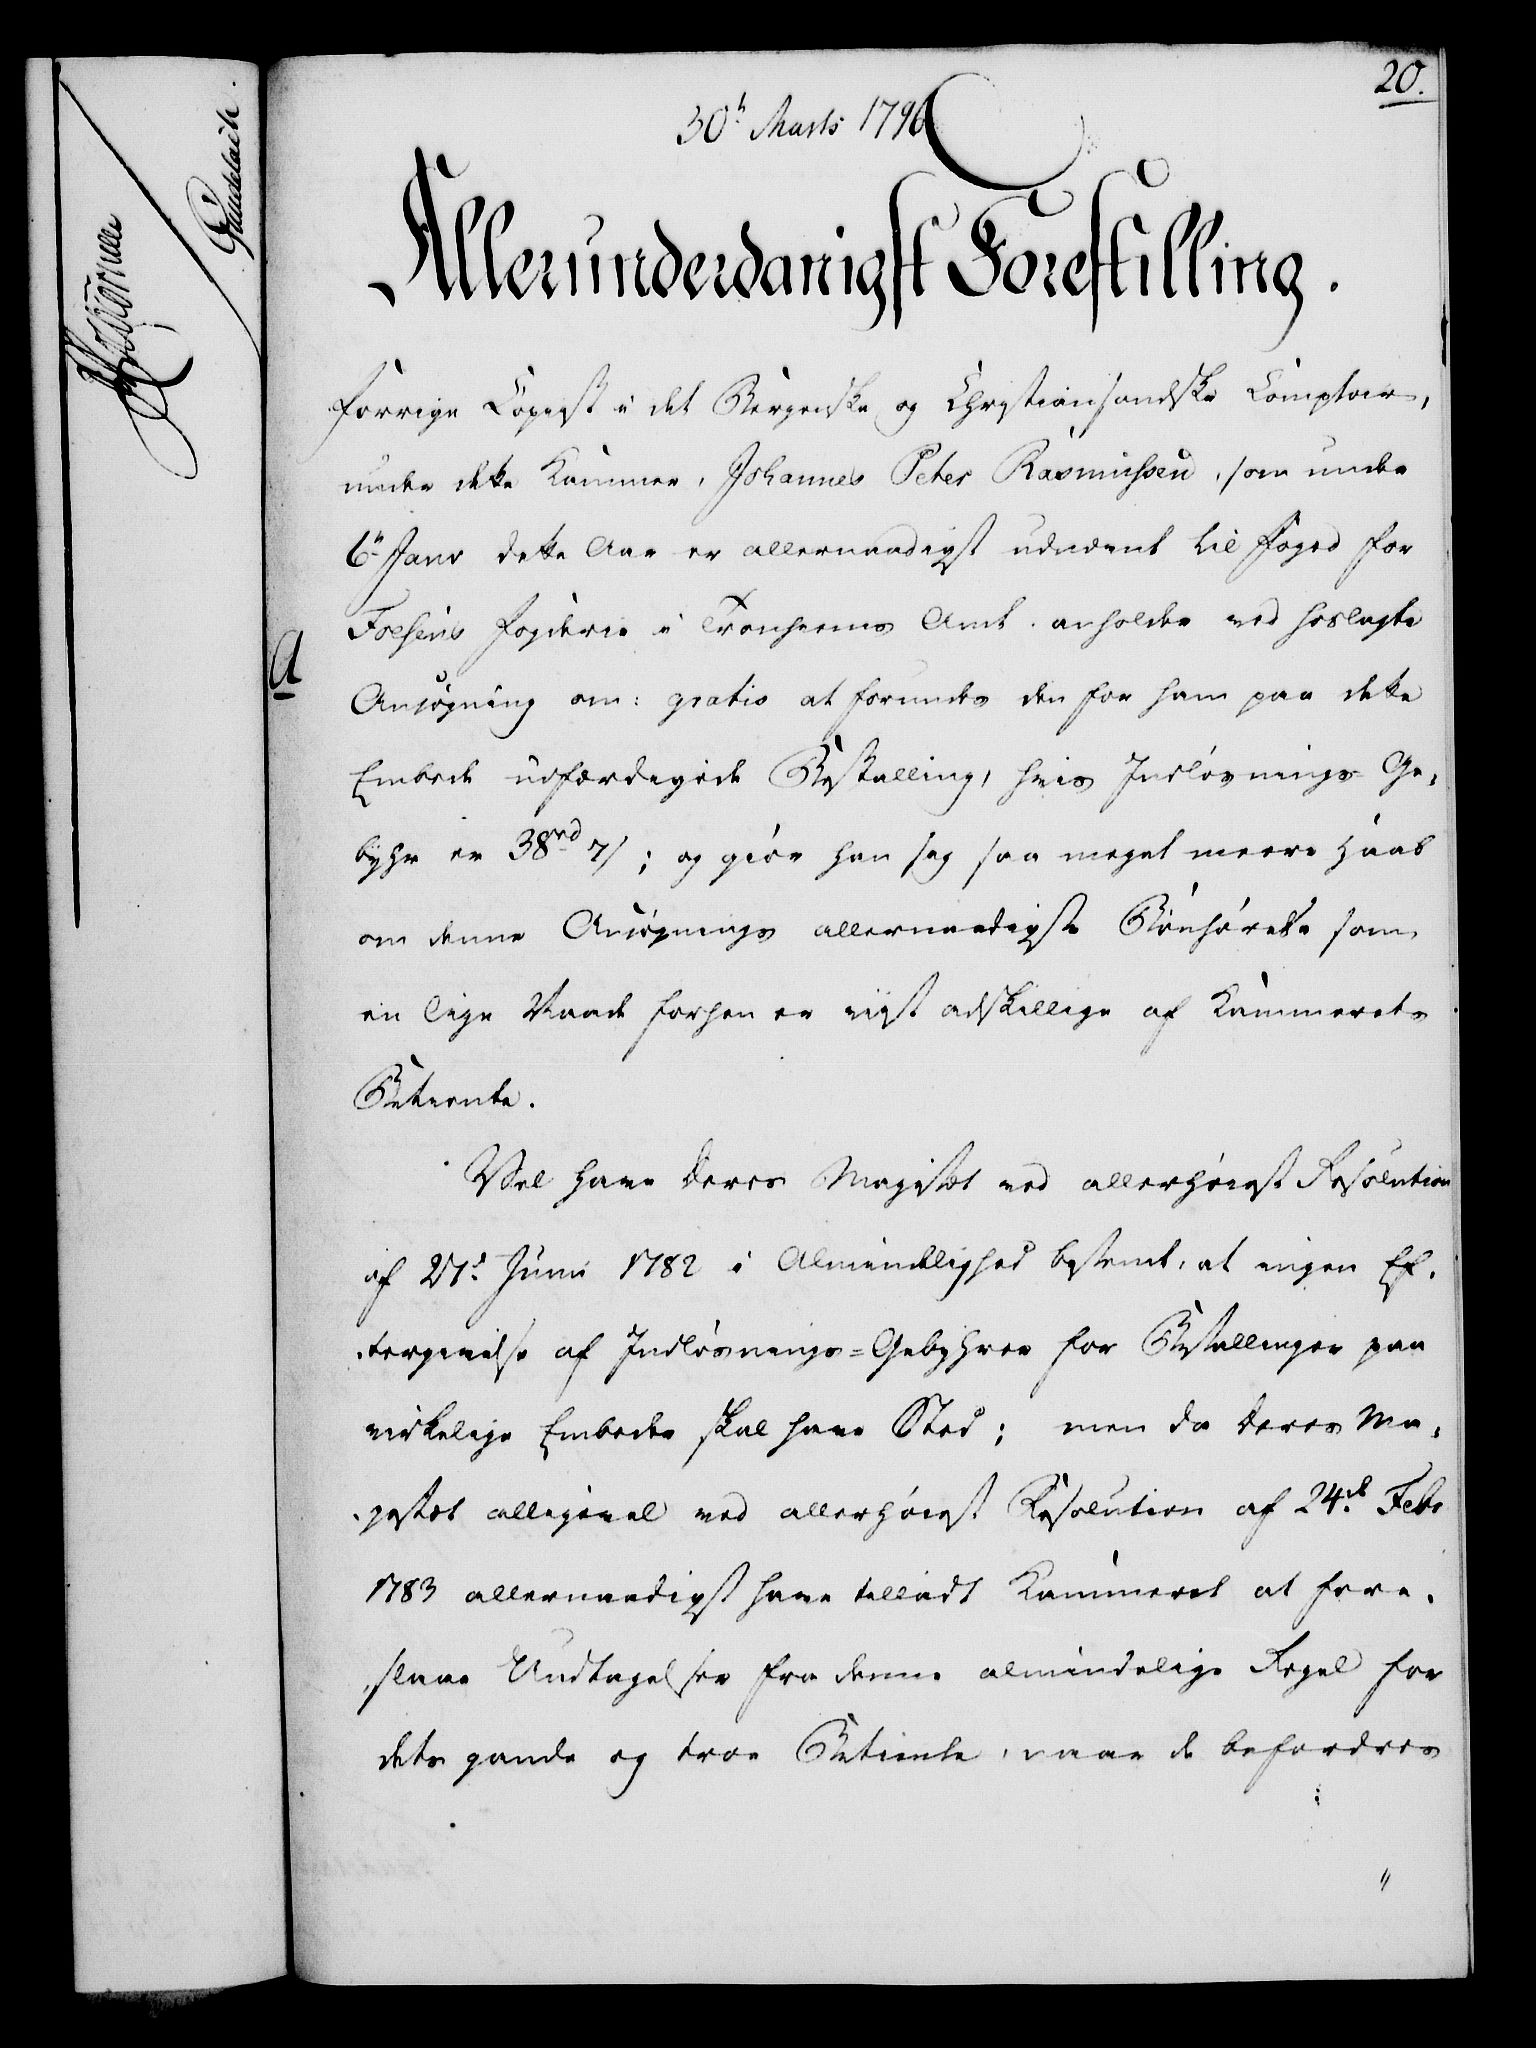 20.
30te Marts 1796
Allerunderdanigst Forestilling.
Forrige Copiist i det Bergenske og Christiansandske Comptoir,
under dette Kammer, Johannes Peter Rasmussen, som under
6te Janv dette Aar er allernaadigst udnævnt til Foged for
Fosens Fogderie i Tronhiems Amt, anholder ved hoslagte
A
Ansøgning om: gratis at forundes den for ham paa dette
Embede udfærdigede Bestalling, hvis Indløsnings-Ge-
byhr er 38rd 7s; og giør han sig saa meget meere Haab
om denne Ansøgnings allernaadigste Bønhørelse som
en lige Naade forhen er viist adskillige af Kammerets
Betiente.
Vel have Deres Majestæt ved allerhøiest Resolution
af 21de Junii 1782 i Almindelighed bestemt, at ingen Ef-
tergivelse af Indløsnings-Gebyhrer for Bestallinger paa
virkelige Embeder skal have Sted; men da Deres Ma-
jestæt alligevel ved allerhøiest Resolution af 24de Febr
1783 allernaadigst have tilladt Kammeret at fore-
slaae Undtagelser fra denne almindelige Regel for
dets gamle og troe Betiente, naar de befordres